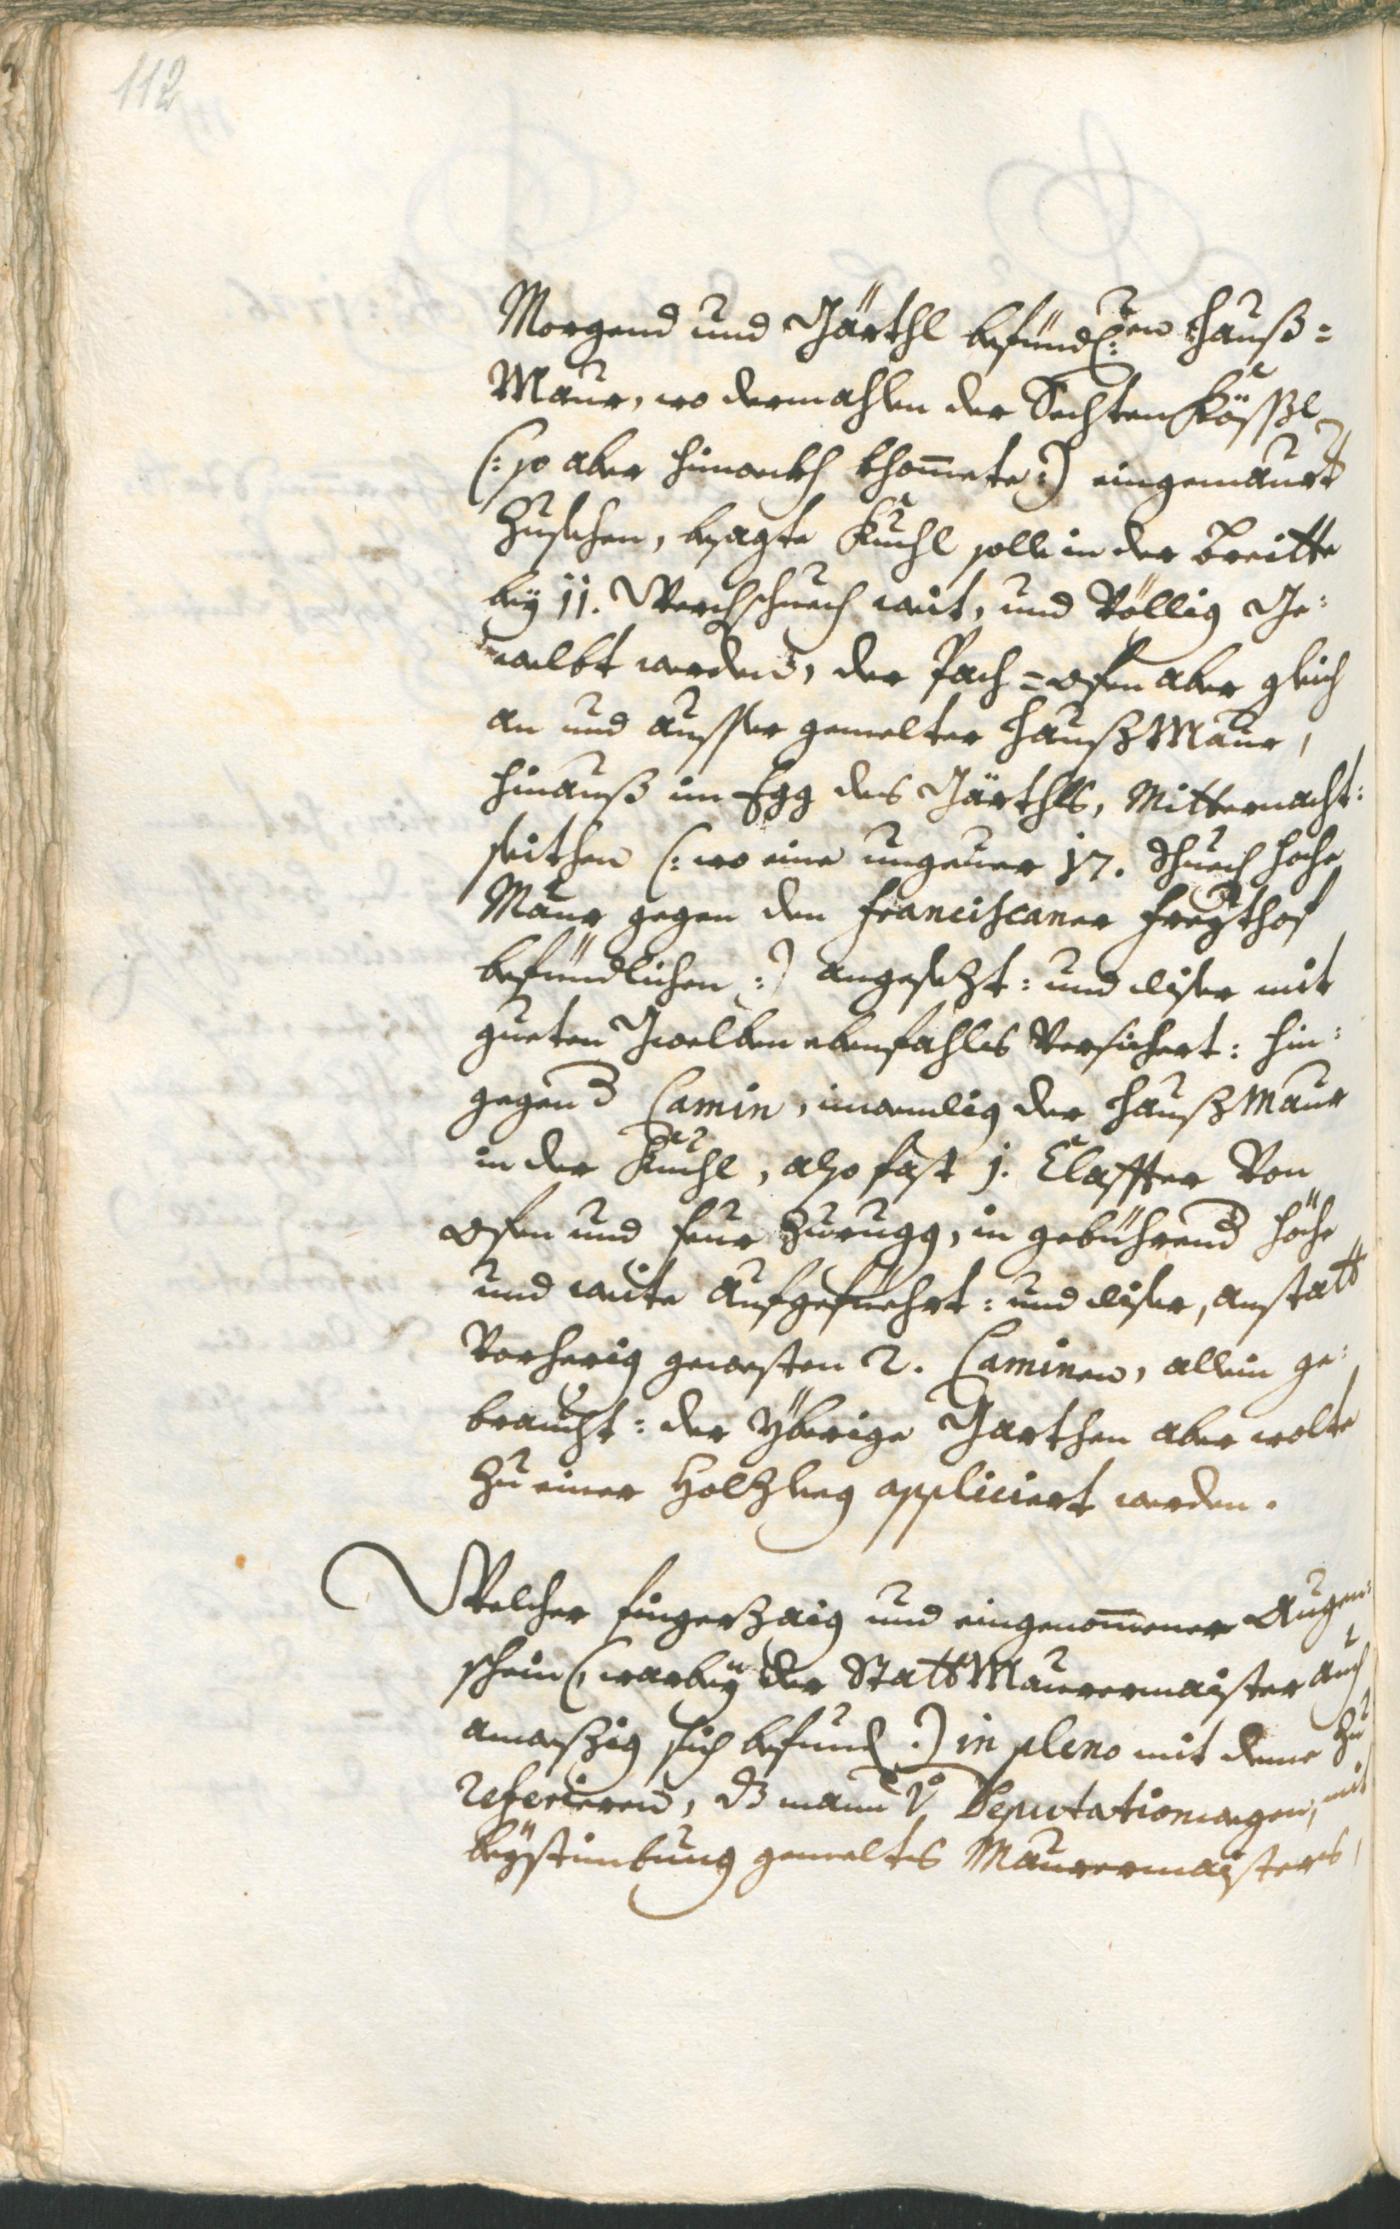 112
Morgend und Gärthl befündl:en Hauß=
Maur, wo dermahlen der Sechten Kößßl
(: so aber hinweckh khom̅ete :) eingemaurt
zusehen, besagte Kuchl solle in der Breitte
bey 11. Werchschuech weit, und Völlig Ge=
welbt werden, der Pach=ofen aber gleich
an und ausser gemelter Haußmaur,
hinauß im Egg des Gärthls, Mitternacht:
seithen (: wo eine ungeuer 17. Schuech hoche
Maur gegen den Franciscaner Freythof
befündlichen :) angesezt: und diser mit
gueten Gwelben ebenfahls Versichert: Hin:
gegen Camin, inwendig der Haußmaur
in der Kuchl, also fast 1. Claffter Von
ofen und feur zurugg, in gebührend höche
und weite aufgefüehrt: und diser, anstatt
Vorherig gewesten 2. Caminen, allein ge:
braucht: der yberige Garthen aber wolte
zu einer Holzleg appliciert werden.
Welcher fingerzaig und eingenom̅ener Augen:
schein (: warbey der Statt Maurermaister auch
anweßig sich befund :) in pleno mit deme zu
referieren, dß mann Deputationwegen, mit
beystimbung gemeltes Maurermaisters,